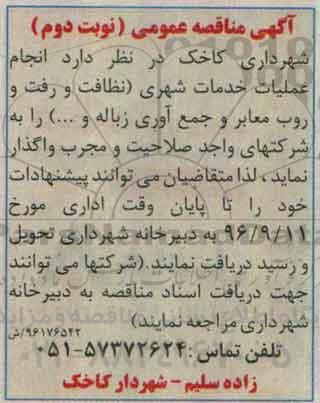 آگهی مناقصه عمومی (نوبت دوم)
شهرداری کاخک در نظر دارد انجام
عملیات خدمات شهری (نظافت و رفت و
روب معابر و جمع آوری زباله و ...) را به
شرکتهای واجد صلاحیت و مجرب واگذار
نماید، لذا متقاضیان می توانند پیشنهادات
خود را تا پایان وقت اداری مورخ
۹۶/۹/۱۱ به دبیرخانه شهرداری تحویل
و رسید دریافت نمایند.(شرکتها می توانند
جهت دریافت اسناد مناقصه به دبیرخانه
شهرداری مراجعه نمایند)
۹۶۱۷۶۵۴۲/ش
تلفن تماس :۵۷۳۷۲۶۲۴-۰۵۱
زاده سلیم - شهردار کاخک